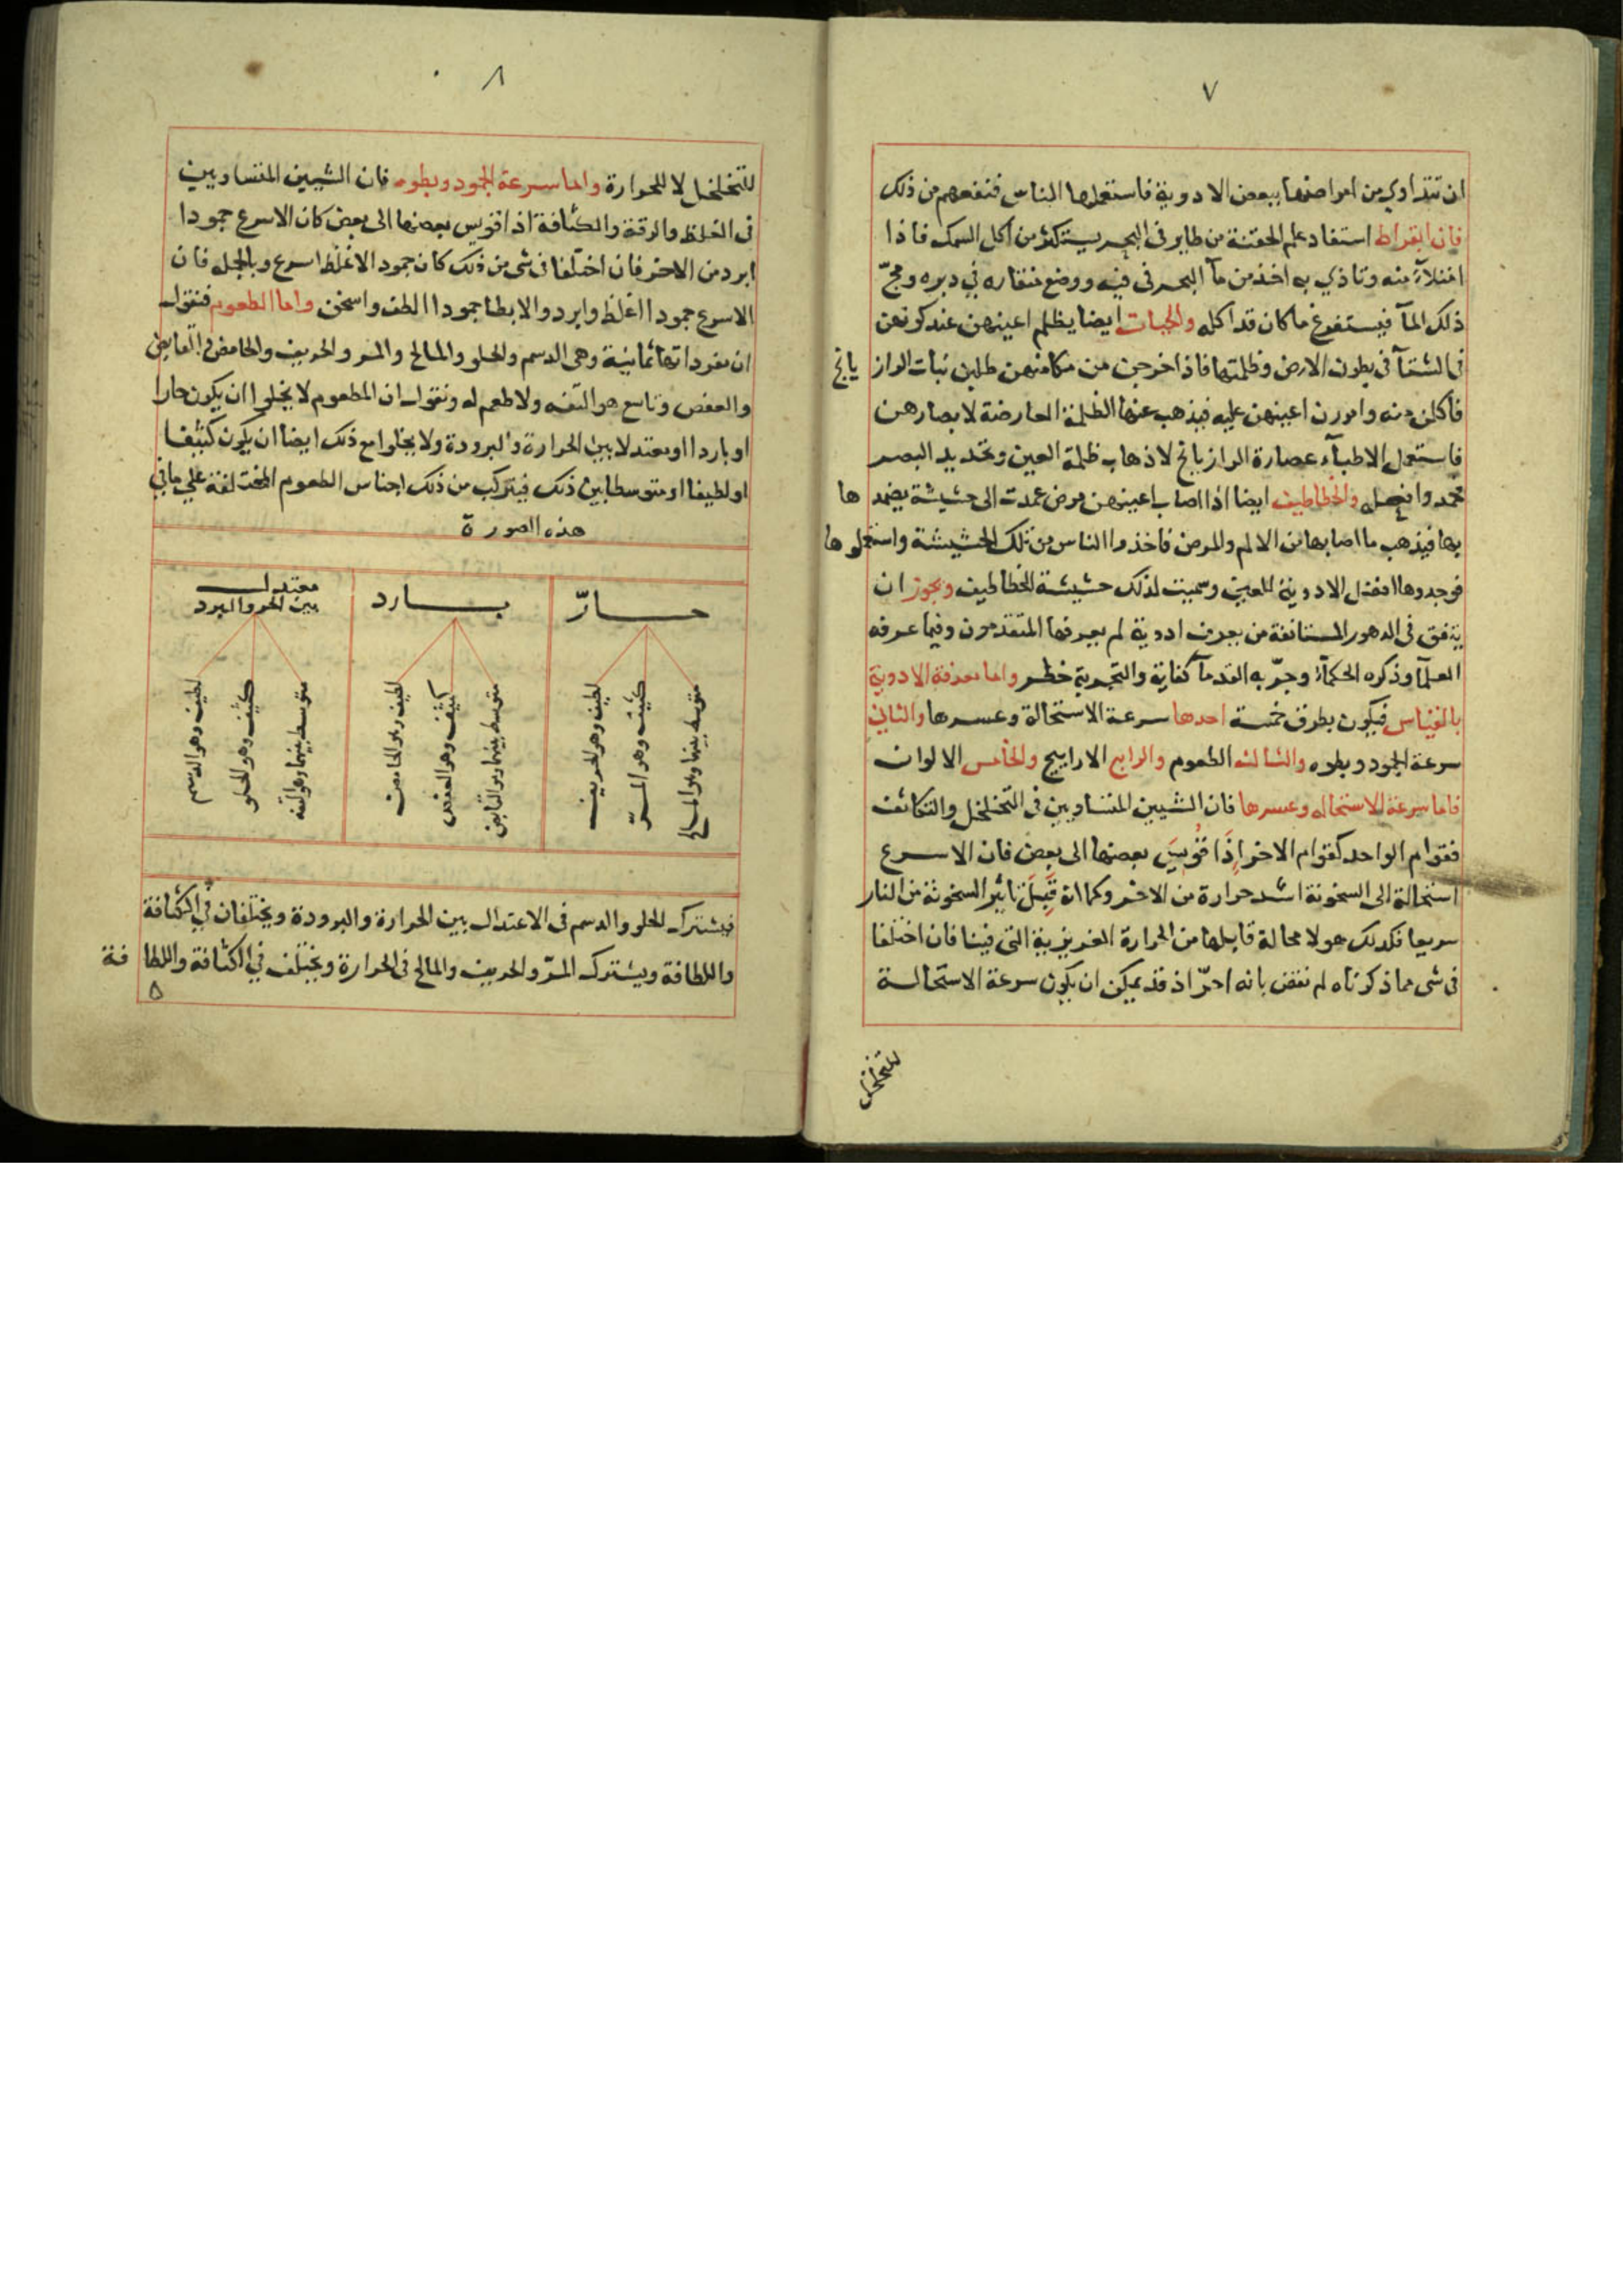 ٧
ان تتداوي من امراضها ببعض الادوية فاستعملها الناس فنفعهم من ذلك
فان ابقراط استفاد علم الحقنة من طاير في البحر يستكثر من اكل السمك فاذا
امتلاء منه وتاذي به اخذ من مآ البحر في فيه ووضع منقاره في دبره ومجّ
ذلك المآ فيستفرغ ما كان قد اكله والحيات ايضا يظلم اعينهن عند كونهن
في الشتآ في بطون الارض وظلمتها فاذا خرجن من مكامنهن طلبن نبات الراز يانج
فاكلن منه وامررن اعينهن عليه فيذهب عنها الظلمة العارضة لابصارهن
فاستعمل الاطبآء عصارة الرازيانج لاذهاب ظلمة العين وتحديد البصر
فحمدوا فعله والخطاطيف ايضا اذا اصاب اعينهن مرض عمدت الى حشيشة يضمد ها
بها فيذهب ما اصابها من الالم والمرض فاخذوا الناس من تلك الحشيشة واستعملو ها
فوجدوها افضل الادوية للعين وسميت لذلك حشيشة الخطاطيف ويجوز ان
يتفق في الدهور المستانفة من يعرف ادوية لم يعرفها المتقدمون وفيما عرفه
العلمآ وذكره الحكمآء وجرّبه القدمآ كفاية والتجربة خطر واما معرفة الادوية
بالقياس فيكون بطرق خمسة احدها سرعة الاستحالة وعسرها والثاني
سرعة الجمود وبطوه والثالث الطعوم والرابع الاراييح والخامس الالوان
فاما سرعة الاستحاله وعسرها فان الشيين المتساويين في التخلخل والتكاثف
فقوام الواحد كقوام الاخر اذا قويس بعضها الى بعض فان الاسرع
استحالة الى السخونة اشد حرارة من الاخر وكما انه قبل تاثير السخونة من النار
سريعا فكذلك هو لا محالة قابلها من الحرارة الغريزية التي فينا فان اختلفا
في شى مما ذكرناه لم نقض بانه احرّ اذ قد يمكن ان يكون سرعة الاستحالة
للتخلخل
٨
للتخلخل لا للحرارة واما سرعة الجمود وبطوه فان الشيين المتساويين
في الغلظ والرقة والكثافة اذا قويس بعضها الى بعض كان الاسرع جمودا
ابرد من الاخر فان اختلفا في شى من ذلك كان جمود الاغلظ اسرع وبالجمله فان
الاسرع جمودا اغلظ وابرد والابطا جمودا الطف واسخن واما الطعوم فنقول
ان مفرداتها ثمانية وهى الدسم والحلو والمالح والمر والحريف والحامض والقابض
والعفص وتاسع هو التفه ولا طعم له ونقول ان المطعوم لا يخلوا ان يكون حارا
او باردا او معتدلا بين الحرارة والبرودة ولا يخلوا مع ذلك ايضا ان يكون كثيفا
او لطيفا او متوسطا بين ذلك فيتركب من ذلك اجناس الطعوم المختلفة علي ما في
هذه الصورة
حارّ
متوسط بينهما وهو المالح
كثيف وهو المرّ
لطيف وهو الحريف
بارد
متوسط بينهما وهو القابض
كثيف وهو العفص
لطيف وهو الحامض
معتدل
بين الحر والبرد
متوسط بينهما وهو التفه
كثيف وهو الحلو
لطيف وهو الدسم
فيشترك الحلو والدسم في الاعتدال بين الحرارة والبرودة ويختلفان في الكثافة
واللطافة ويشترك المرّ والحريف والمالح في الحرارة ويختلف في الكثافة واللطا فة